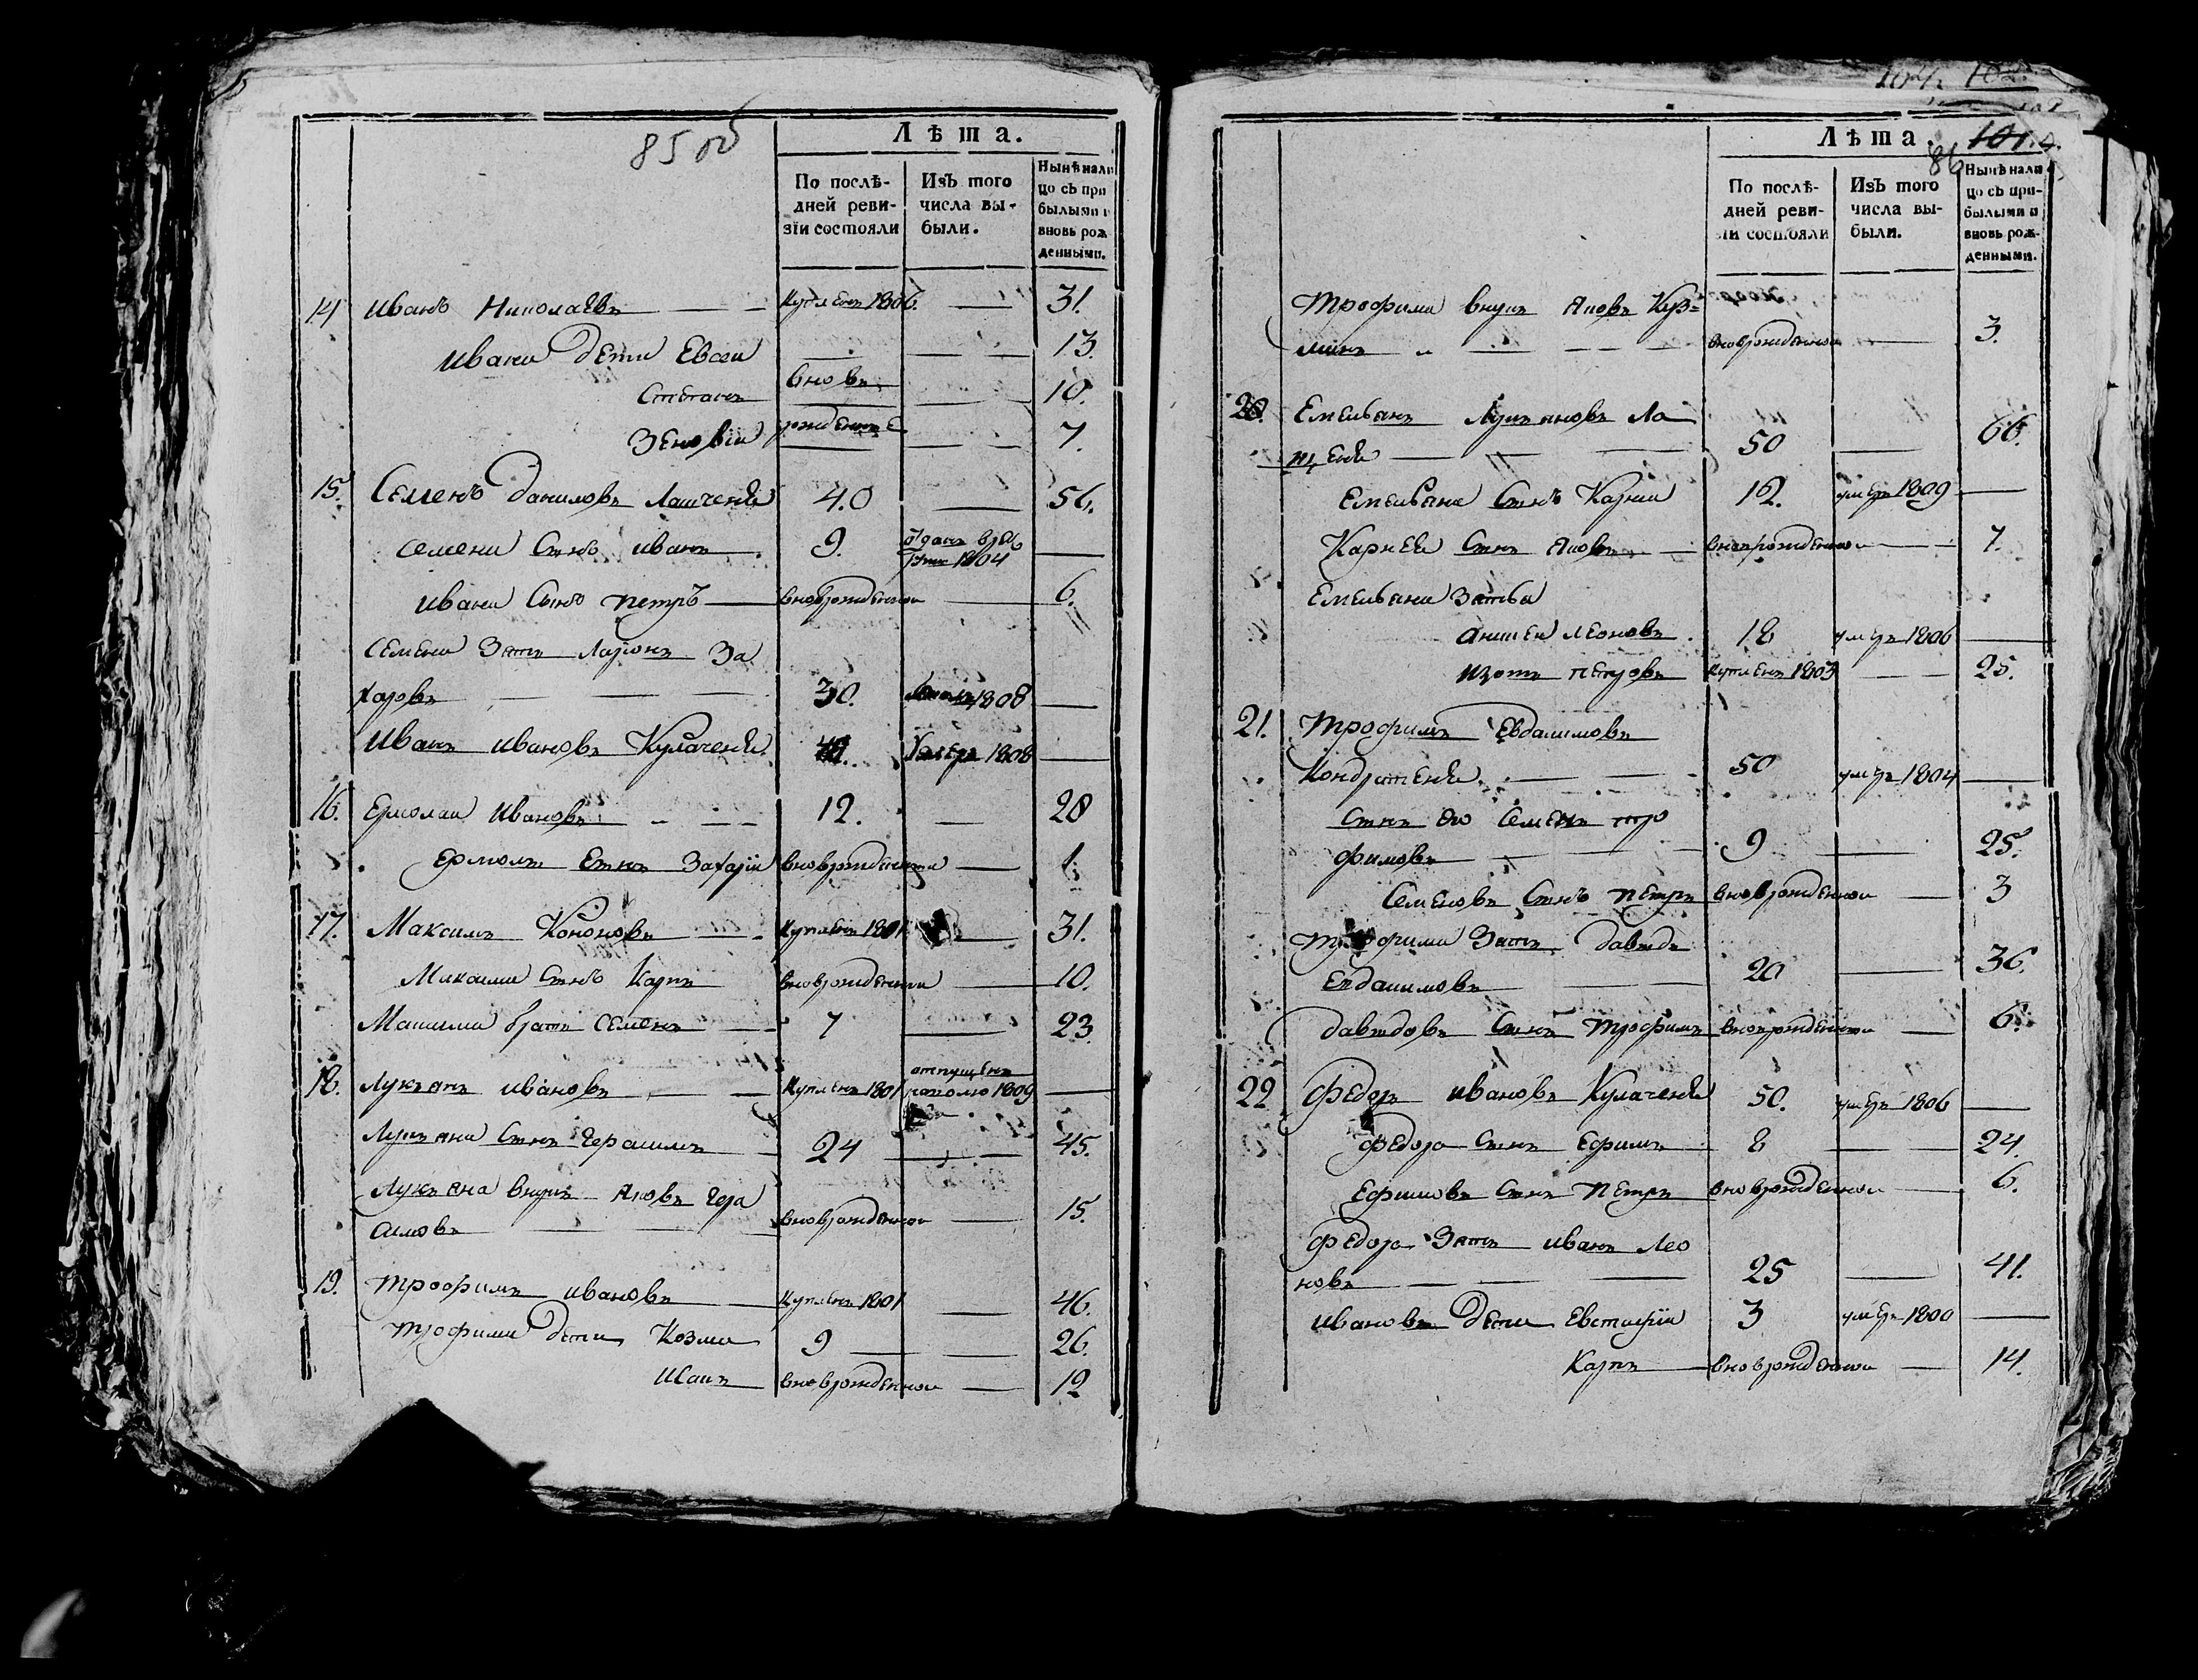 85 об
Лѣта.
По послѣ- Изъ того Нынѣ нали
дней реви- числа вы- цо съ при
зіи состояли были. былыми и
вновь рож
денными.
14 Иванъ Николаевъ — купленъ 1806. — 31.
Ивана дети Евсеи — — 13.
Степанъ вновь — 10.
Зеновіи рожденные — 7.
15. Семенъ Даниловъ Лашченко 40 — 56.
Семена Сынъ иванъ. 9. отданъ врек 1804 —
ивана Сынъ петръ — вноврожденнои — 6.
Семена Зять Ларионъ За
харовъ — 30. 1808 —
Иванъ ивановъ Кулаченко 1808 —
16. Ермолаи Ивановъ — 12. — 28
Ермолы Сынъ Захаріи вноврожденнои — 1.
17. Максимъ Кононовъ — купленъ 1801 — 31.
Максима Сынъ Карпъ вноврожденнои — 10.
Максима братъ Семенъ — 7 — 23.
18. Лукьянъ ивановъ — купленъ 1801 отпущенъ 1809 —
Лукьяна Сынъ Герасимъ — 24 — 45.
Лукьяна внукъ Яковъ Гера
симовъ — вноврожденнои — 15.
19. Трофимъ ивановъ — купленъ 1801 — 46.
Трофима дети Козма 9 — 26.
Исаия вноврожденнои — 12
101.
86
Лѣта.
По послѣ- Изъ того Нынѣ нали
дней реви- числа вы- цо съ при-
зіи состояли были. былыми и
вновь рож-
денными.
Трофима внукъ Яковъ Куз=
минъ — вноврожденнои — 3.
20. Емельянъ Лукьяновъ Ла
щенко — 50 — 66.
Емельяна Сынъ Карнеи 12. умеръ 1809 —
Карнея Сынъ Яковъ — вноврожденнои — 7.
Емельяна Зятья
Леоновъ. 18 умеръ 1806 —
изотъ петровъ купленъ 1803 — 25.
21. Трофимъ Евдокимовъ
Кондратенко. — 50 умеръ 1804 —
Сынъ его Семенъ тро
фимовъ — 9 — 25.
Семеновъ Сынъ петръ вноврожденнои — 3
Трофима Зять Давыдъ
Евдокимовъ — 20 — 36.
Давыдовъ Сынъ Трофимъ вноврожденнои — 6.
22 Федоръ ивановъ Кулаченко 50. умеръ 1806 —
Федора Сынъ Ефимъ 8 — 24.
Ефимовъ Сынъ петръ вноврожденнои — 6.
Федора Зять иванъ Лео
новъ — 25 — 41.
ивановъ Дети Евстафіи 3 умеръ 1800 —
Карпъ — вноврожденнои — 14.